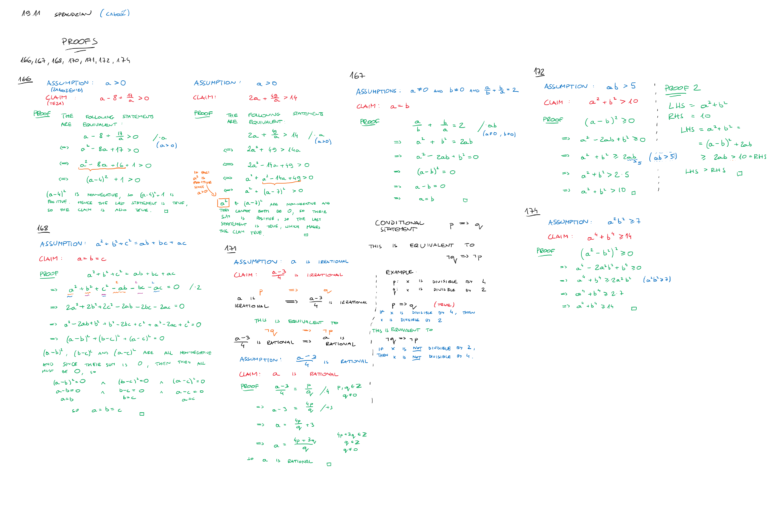 19.11
PROOFS
166, 167, 168, 170, 171, 172, 174
166
ASSUMPTION: a>0
CLAIM: a - 8 + 17/a > 0
(TEZA)
PROOF THE FOLLOWING STATEMENTS
ARE EQUIVALENT
a - 8 + 17/a > 0 /·a
(a>0)
⟺ a² - 8a + 17 > 0
⟺ a² - 8a + 16 + 1 > 0
⟺ (a-4)² + 1 > 0
(a-4)² IS NONNEGATIVE, SO (a-4)²+1 IS
POSITIVE HENCE THE LAST STATEMENT IS TRUE,
SO THE CLAIM IS ALSO TRUE. □
ASSUMPTION: a>0
CLAIM: 2a + 49/a > 14
PROOF THE FOLLOWING STATEMENTS
ARE EQUIVALENT
2a + 49/a > 14 /·a
(a>0)
⟺ 2a² + 49 > 14a
⟺ 2a² - 14a + 49 > 0
⟺ a² + a² - 14a + 49 > 0
⟺ a² + (a-7)² > 0
a² & (a-7)² ARE NONNEGATIVE AND
THEY CANNOT BOTH BE 0, SO THEIR
SUM IS POSITIVE, SO THE LAST
STATEMENT IS TRUE, WHICH MAKES
THE CLAIM TRUE □
168
ASSUMPTION: a² + b² + c² = ab + bc + ac
CLAIM: a = b = c
PROOF a² + b² + c² = ab + bc + ac
⟹ a² + b² + c² - ab - bc - ac = 0 /·2
⟹ 2a² + 2b² + 2c² - 2ab - 2bc - 2ac = 0
⟹ a² - 2ab + b² + b² - 2bc + c² + a² - 2ac + c² = 0
⟹ (a-b)² + (b-c)² + (a-c)² = 0
(a-b)², (b-c)² AND (a-c)² ARE ALL NONNEGATIVE
AND SINCE THEIR SUM IS 0, THEN THEY ALL
MUST BE 0, SO
(a-b)²=0 ∧ (b-c)²=0 ∧ (a-c)²=0
a-b=0 ∧ b-c=0 ∧ a-c=0
a=b b=c a=c
SO a=b=c □
171
ASSUMPTION: a IS IRRATIONAL
CLAIM: a-3/4 IS IRRATIONAL
p ⟹ q
a IS IRRATIONAL ⟹ a-3/4 IS IRRATIONAL
THIS IS EQUIVALENT TO
¬q ⟹ ¬p
a-3/4 IS RATIONAL ⟹ a IS RATIONAL
ASSUMPTION: a-3/4 IS RATIONAL
CLAIM: a IS RATIONAL
PROOF a-3/4 = p/q /·4 p, q ∈ Z
q≠0
⟹ a-3 = 4p/q /+3
⟹ a = 4p/q + 3
⟹ a = 4p+3q/q 4p+3q ∈ Z
q ∈ Z
q≠0
SO a IS RATIONAL □
167
ASSUMPTIONS: a≠0 AND b≠0 AND a/b + b/a = 2
CLAIM: a=b
PROOF a/b + b/a = 2 /·ab
(a≠0, b≠0)
⟹ a² + b² = 2ab
⟹ a² - 2ab + b² = 0
⟹ (a-b)² = 0
⟹ a-b=0
⟹ a=b □
CONDITIONAL STATEMENT p ⟹ q
THIS IS EQUIVALENT TO
¬q ⟹ ¬p
EXAMPLE
p: x IS DIVISIBLE BY 4
q: x IS DIVISIBLE BY 2
p ⟹ q (TRUE)
IF x IS DIVISIBLE BY 4, THEN
x IS DIVISIBLE BY 2
THIS IS EQUIVALENT TO
¬q ⟹ ¬p
IF x IS NOT DIVISIBLE BY 2,
THEN x IS NOT DIVISIBLE BY 4.
172
ASSUMPTION: ab > 5
CLAIM: a² + b² > 10
PROOF (a-b)² ≥ 0
⟹ a² - 2ab + b² ≥ 0
⟹ a² + b² ≥ 2ab (ab>5)
⟹ a² + b² > 2·5
⟹ a² + b² > 10 □
PROOF 2
LHS = a² + b²
RHS = 10
LHS = a² + b² =
= (a-b)² + 2ab
≥ 2ab > 10 = RHS
LHS > RHS □
174
ASSUMPTION: a²b² ≥ 7
CLAIM: a⁴ + b⁴ ≥ 14
PROOF (a² - b²)² ≥ 0
⟹ a⁴ - 2a²b² + b⁴ ≥ 0
⟹ a⁴ + b⁴ ≥ 2a²b² (a²b² ≥ 7)
⟹ a⁴ + b⁴ ≥ 2·7
⟹ a⁴ + b⁴ ≥ 14 □